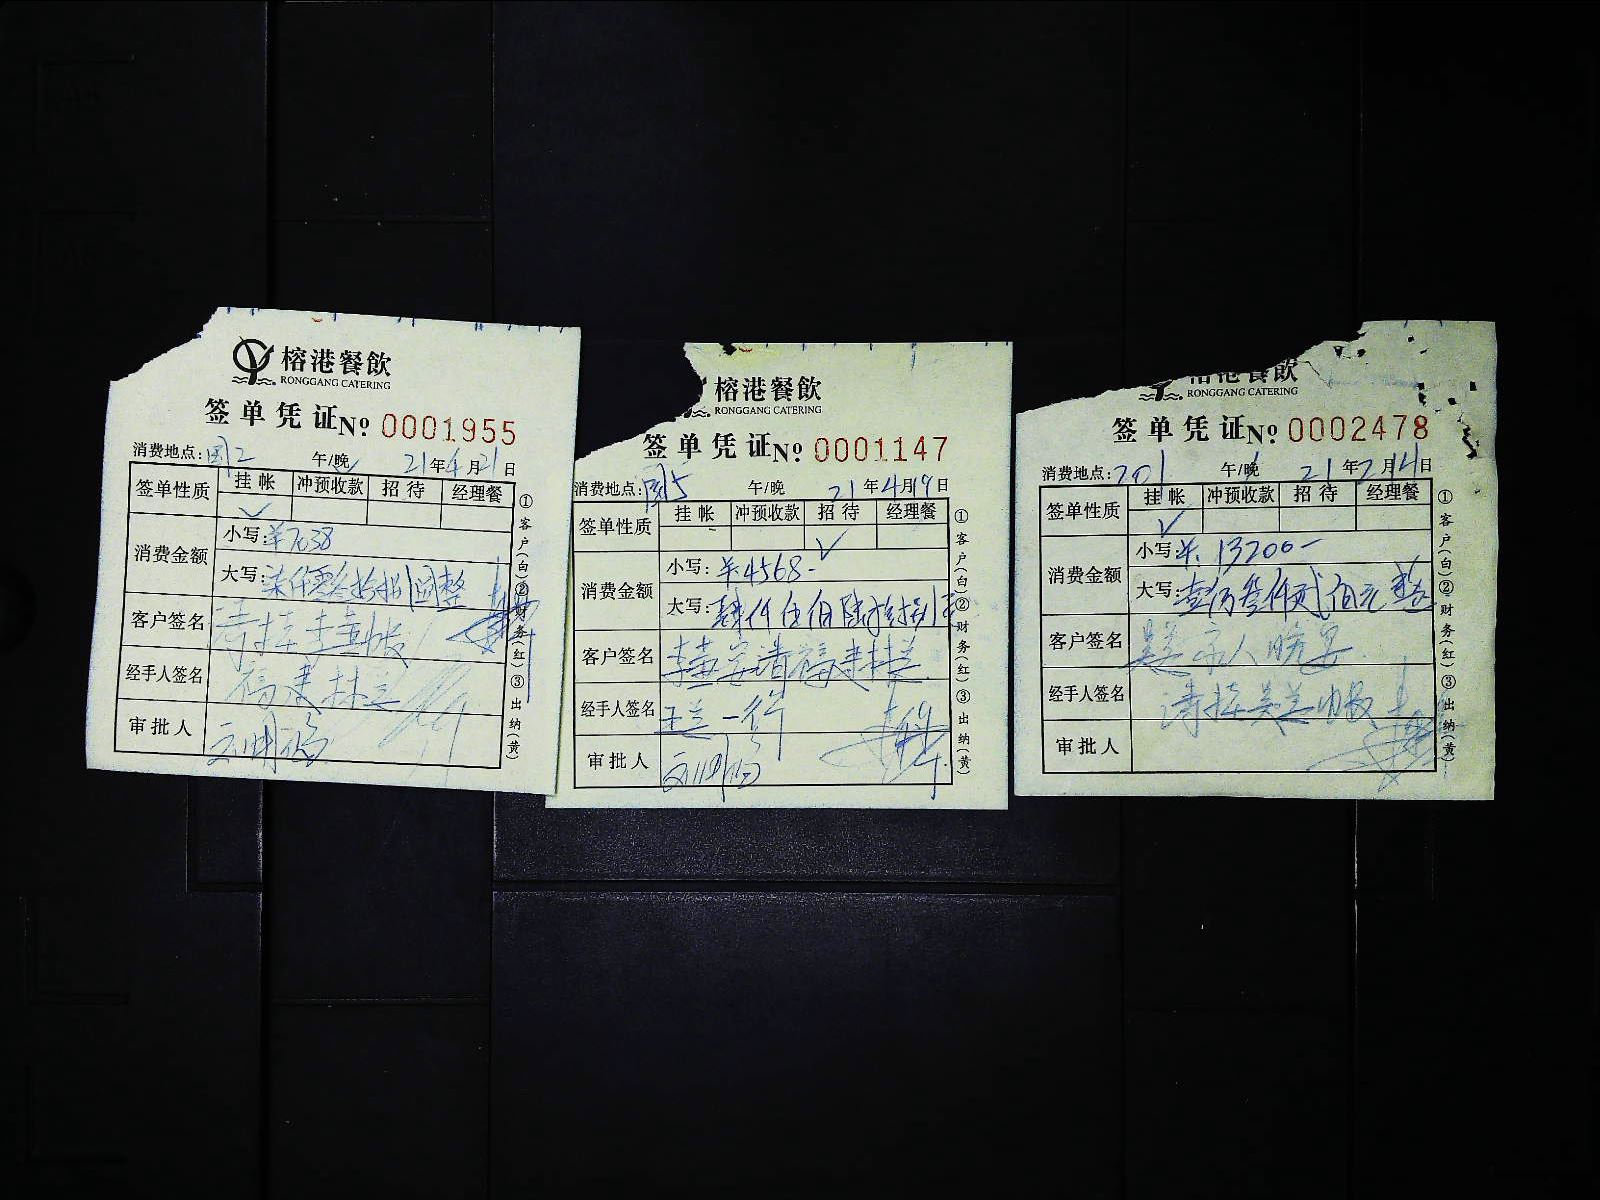 榕港餐飲
RONGGANG CATERING
签单凭证 № 0001955
消费地点: 午/晚 21年4月21日
签单性质 挂帐 冲预收款 招待 经理餐
✓
消费金额 小写:￥7038
大写:柒仟零叁拾捌圆整
客户签名 请挂 帐
经手人签名 福建林兰
审批人
①客户(白)②财务(红)③出纳(黄)
榕港餐飲
RONGGANG CATERING
签单凭证 № 0001147
消费地点: 午/晚 21年4月19日
签单性质 挂帐 冲预收款 招待 经理餐
✓
消费金额 小写:￥4568-
大写:肆仟伍佰陆拾捌元
客户签名 李 宴请福建林兰
经手人签名 一行
审批人
①客户(白)②财务(红)③出纳(黄)
榕港餐飲
RONGGANG CATERING
签单凭证 № 0002478
消费地点:201 午/晚 21年2月14日
签单性质 挂帐 冲预收款 招待 经理餐
✓
消费金额 小写:￥13200-
大写:壹万叁仟贰佰元整
客户签名 人晚宴
经手人签名 请挂吴兰帐
审批人
①客户(白)②财务(红)③出纳(黄)